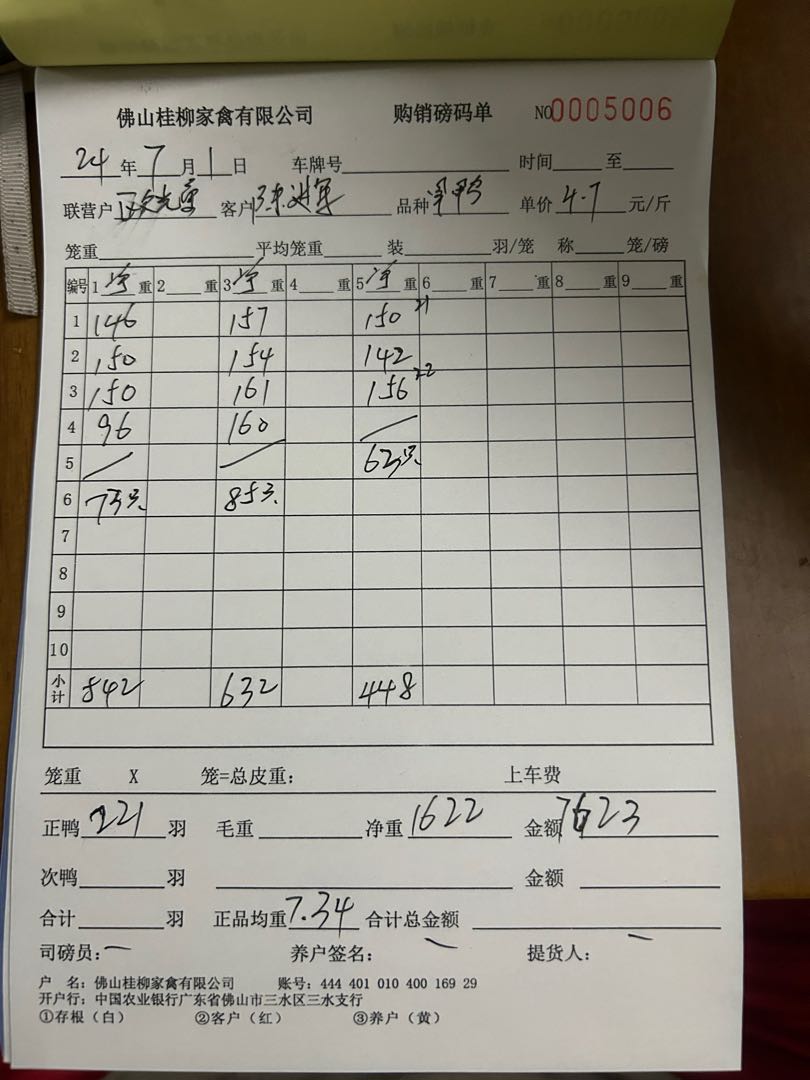 佛山桂柳家禽有限公司 购销磅码单 NO0005006
24年7月1日 车牌号 时间 至
联营户 客户 品种 单价4.7元/斤
笼重 平均笼重 装 羽/笼 称 笼/磅
编号 1净重 2 重 3净重 4 重 5净重 6 重 7 重 8 重 9 重
1 146 157 150 21
2 150 154 142
3 150 161 156 22
4 96 160 /
5 / / 63只
6 73只 85只
7
8
9
10
小计 542 632 448
笼重 X 笼=总皮重: 上车费
正鸭221羽 毛重 净重1622 金额7623
次鸭 羽 金额
合计 羽 正品均重7.34 合计总金额
司磅员: 养户签名: 提货人:
户 名: 佛山桂柳家禽有限公司 账号: 444 401 010 400 169 29
开户行: 中国农业银行广东省佛山市三水区三水支行
①存根(白) ②客户(红) ③养户(黄)